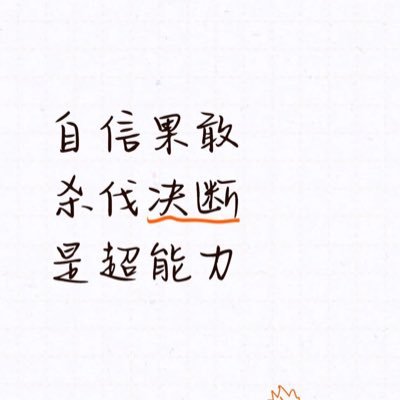 自信果敢
杀伐决断
是超能力